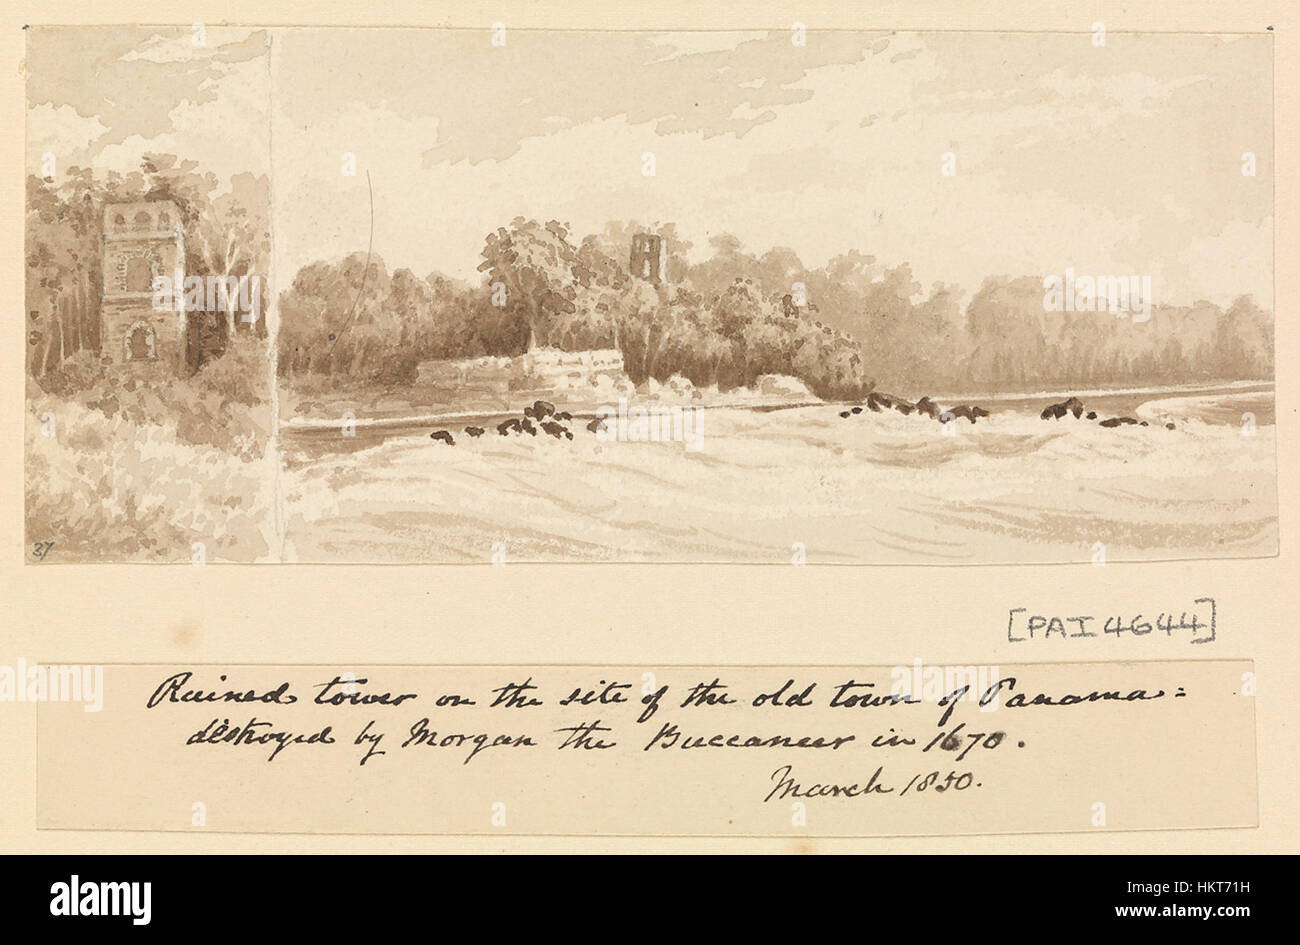 37
[PAI4644]
Ruined tower on the site of the old town of Panama=
destroyed by Morgan the Buccaneer in 1670.
March 1850.
alamy
a
a
a
a
alamy
Image ID: HKT71H
www.alamy.com